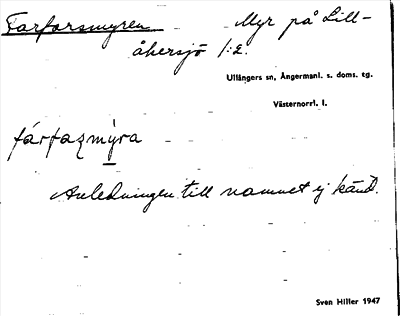 Farfarsmyren Myr på Lill-
åkersjö 1:2.
Ullångers sn, Ångermanl. s. doms. tg.
Västernorrl. l.
fárfazmýra
Anledningen till namnet ej känd.
Sven Hiller 1947